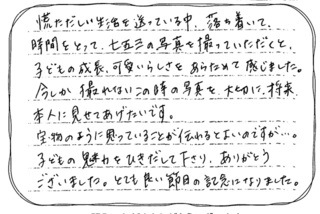 慌ただしい生活を送っている中、落ち着いて、
時間をとって、七五三の写真を撮っていただくと、
子どもの成長、可愛いらしさをあらためて感じました。
今しか撮れないこの時の写真を、大切に、将来、
本人に見せてあげたいです。
宝物のように思っていることが伝わるとよいのですが…。
子どもの魅力をひきだして下さり、ありがとう
ございました。とても良い節目の記念になりました。